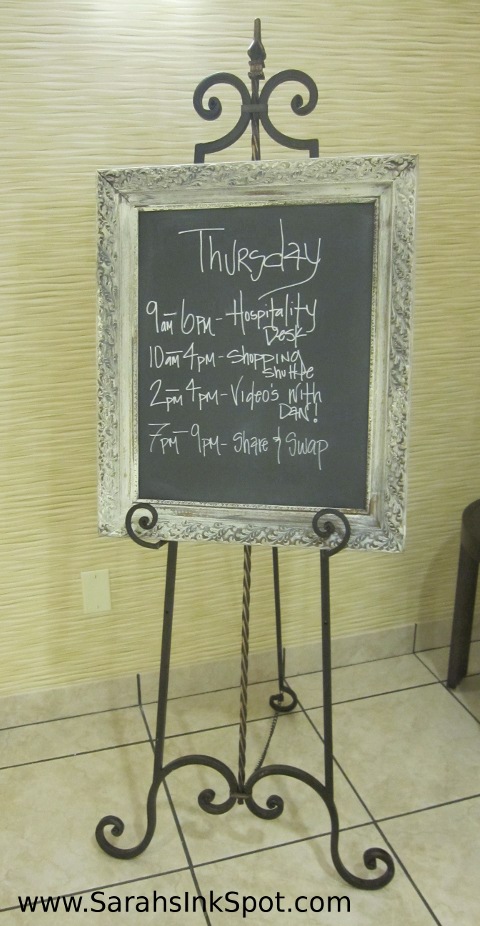 Thursday
9am-6pm-Hospitality
Desk
10am-4pm-Shopping
Shuttle
2pm-4pm-Video's with
Dan!
7pm-9pm-Share & Swap
www.SarahsInkSpot.com